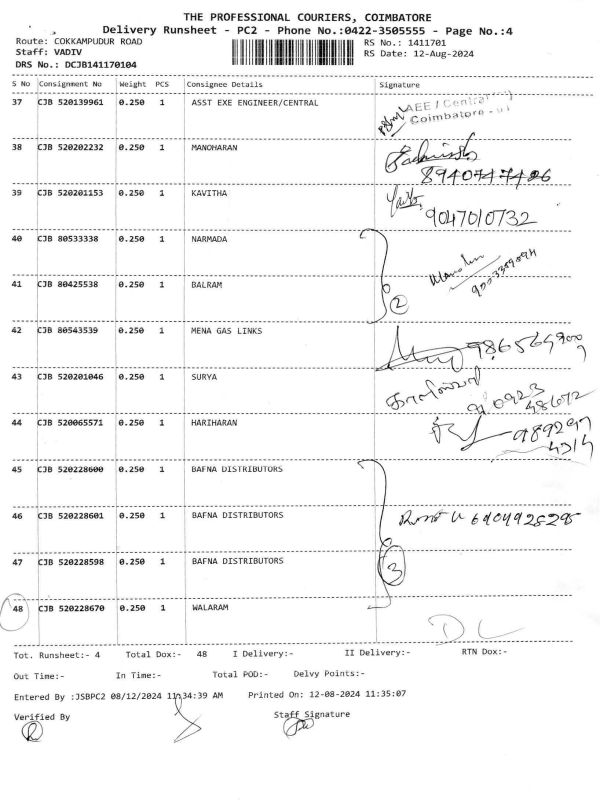 THE PROFESSIONAL COURIERS, COIMBATORE
Delivery Runsheet - PC2 - Phone No.:0422-3505555 - Page No.:4
Route: COKKAMPUDUR ROAD RS No.: 1411701
Staff: VADIV RS Date: 12-Aug-2024
DRS No.: DCJB141170104
S No Consignment No Weight PCS Consignee Details Signature
37 CJB 520139961 0.250 1 ASST EXE ENGINEER/CENTRAL
AEE / Central
Coimbatore -
38 CJB 520202232 0.250 1 MANOHARAN
39 CJB 520201153 0.250 1 KAVITHA
9047010732
40 CJB 80533338 0.250 1 NARMADA
41 CJB 80425538 0.250 1 BALRAM
2
42 CJB 80543539 0.250 1 MENA GAS LINKS
43 CJB 520201046 0.250 1 SURYA
44 CJB 520065571 0.250 1 HARIHARAN
45 CJB 520228600 0.250 1 BAFNA DISTRIBUTORS
46 CJB 520228601 0.250 1 BAFNA DISTRIBUTORS
47 CJB 520228598 0.250 1 BAFNA DISTRIBUTORS
3
48 CJB 520228670 0.250 1 WALARAM
DL
Tot. Runsheet:- 4 Total Dox:- 48 I Delivery:- II Delivery:- RTN Dox:-
Out Time:- In Time:- Total POD:- Delvy Points:-
Entered By :JSBPC2 08/12/2024 11:34:39 AM Printed On: 12-08-2024 11:35:07
Verified By Staff Signature